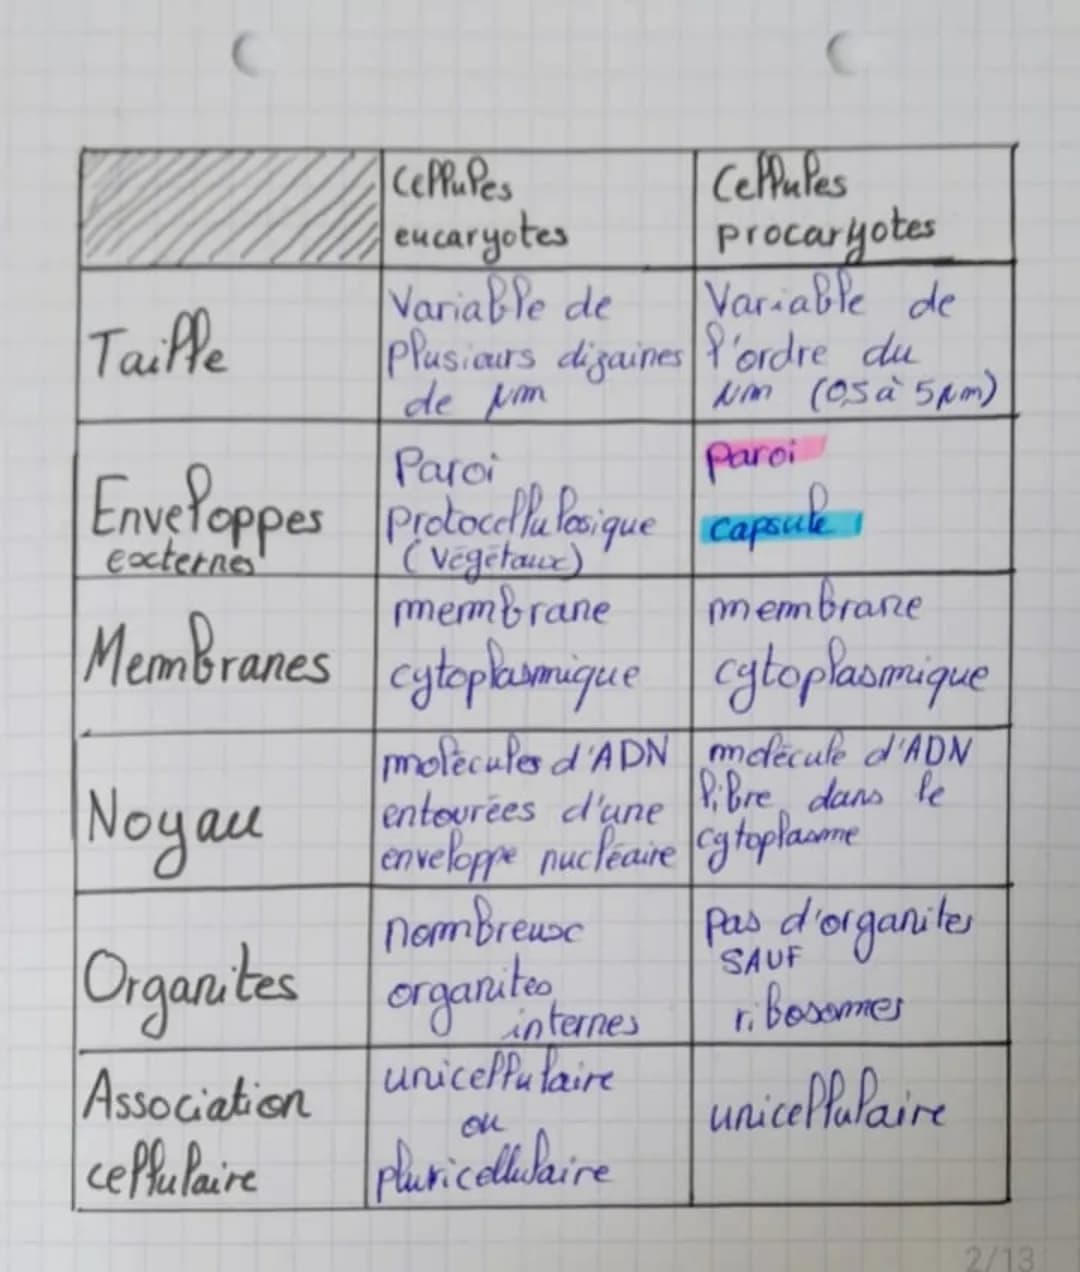 Cellules
eucaryotes
Cellules
procaryotes
Taille
Variable de
plusieurs dizaines
de µm
Variable de
l'ordre du
µm (0,5 à 5µm)
Enveloppes
externes
Paroi
protocellulosique
(végétaux)
paroi
capsule
Membranes
membrane
cytoplasmique
membrane
cytoplasmique
Noyau
molécules d'ADN
entourées d'une
enveloppe nucléaire
molécule d'ADN
libre dans le
cytoplasme
Organites
nombreux
organites
internes
pas d'organites
SAUF
ribosomes
Association
cellulaire
unicellulaire
ou
pluricellulaire
unicellulaire
2/13